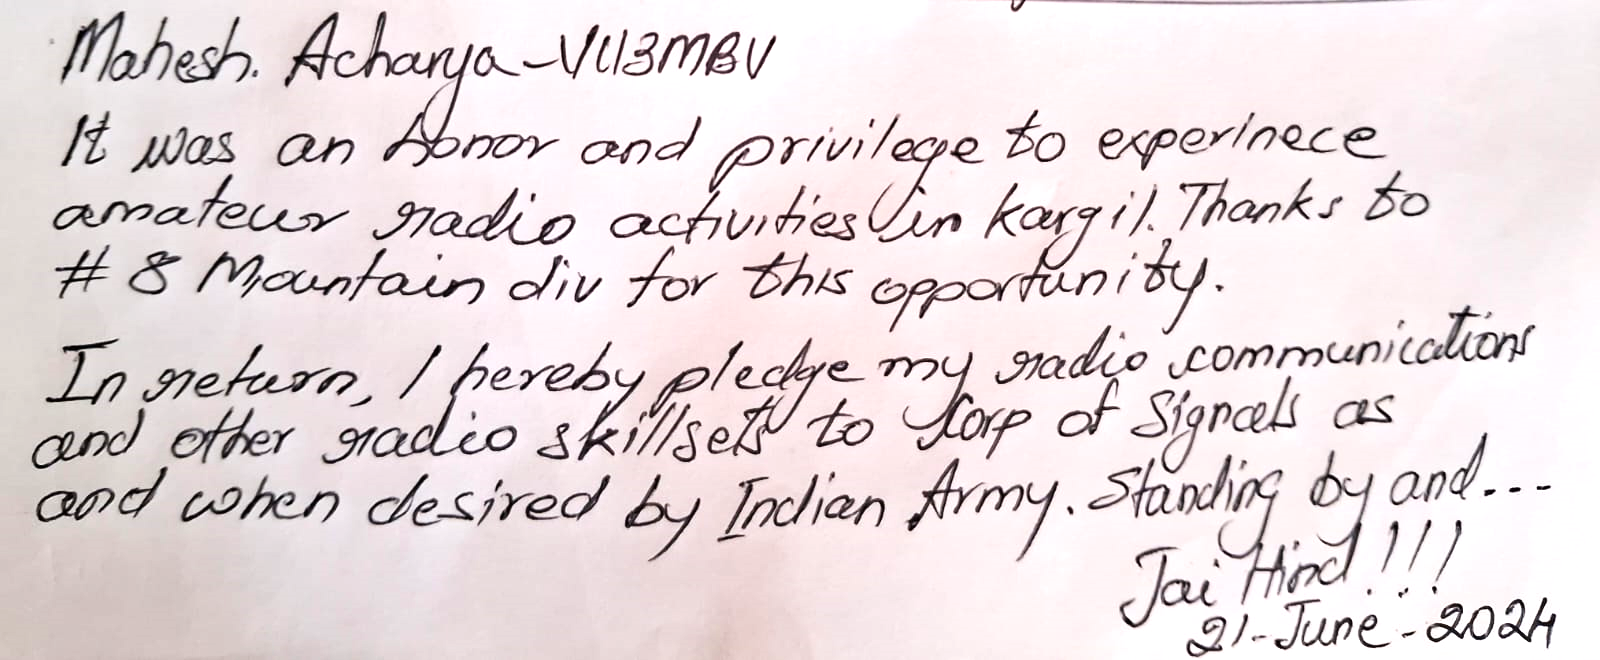 Mahesh. Acharya - VU3MBV
It was an honor and privilege to experinece
amateur radio activities in kargil. Thanks to
# 8 Mountain div for this opportunity.
In return, I hereby pledge my radio communications
and other radio skillsets to Corp of Signals as
and when desired by Indian Army. Standing by and...
Jai Hind!!!
21-June-2024